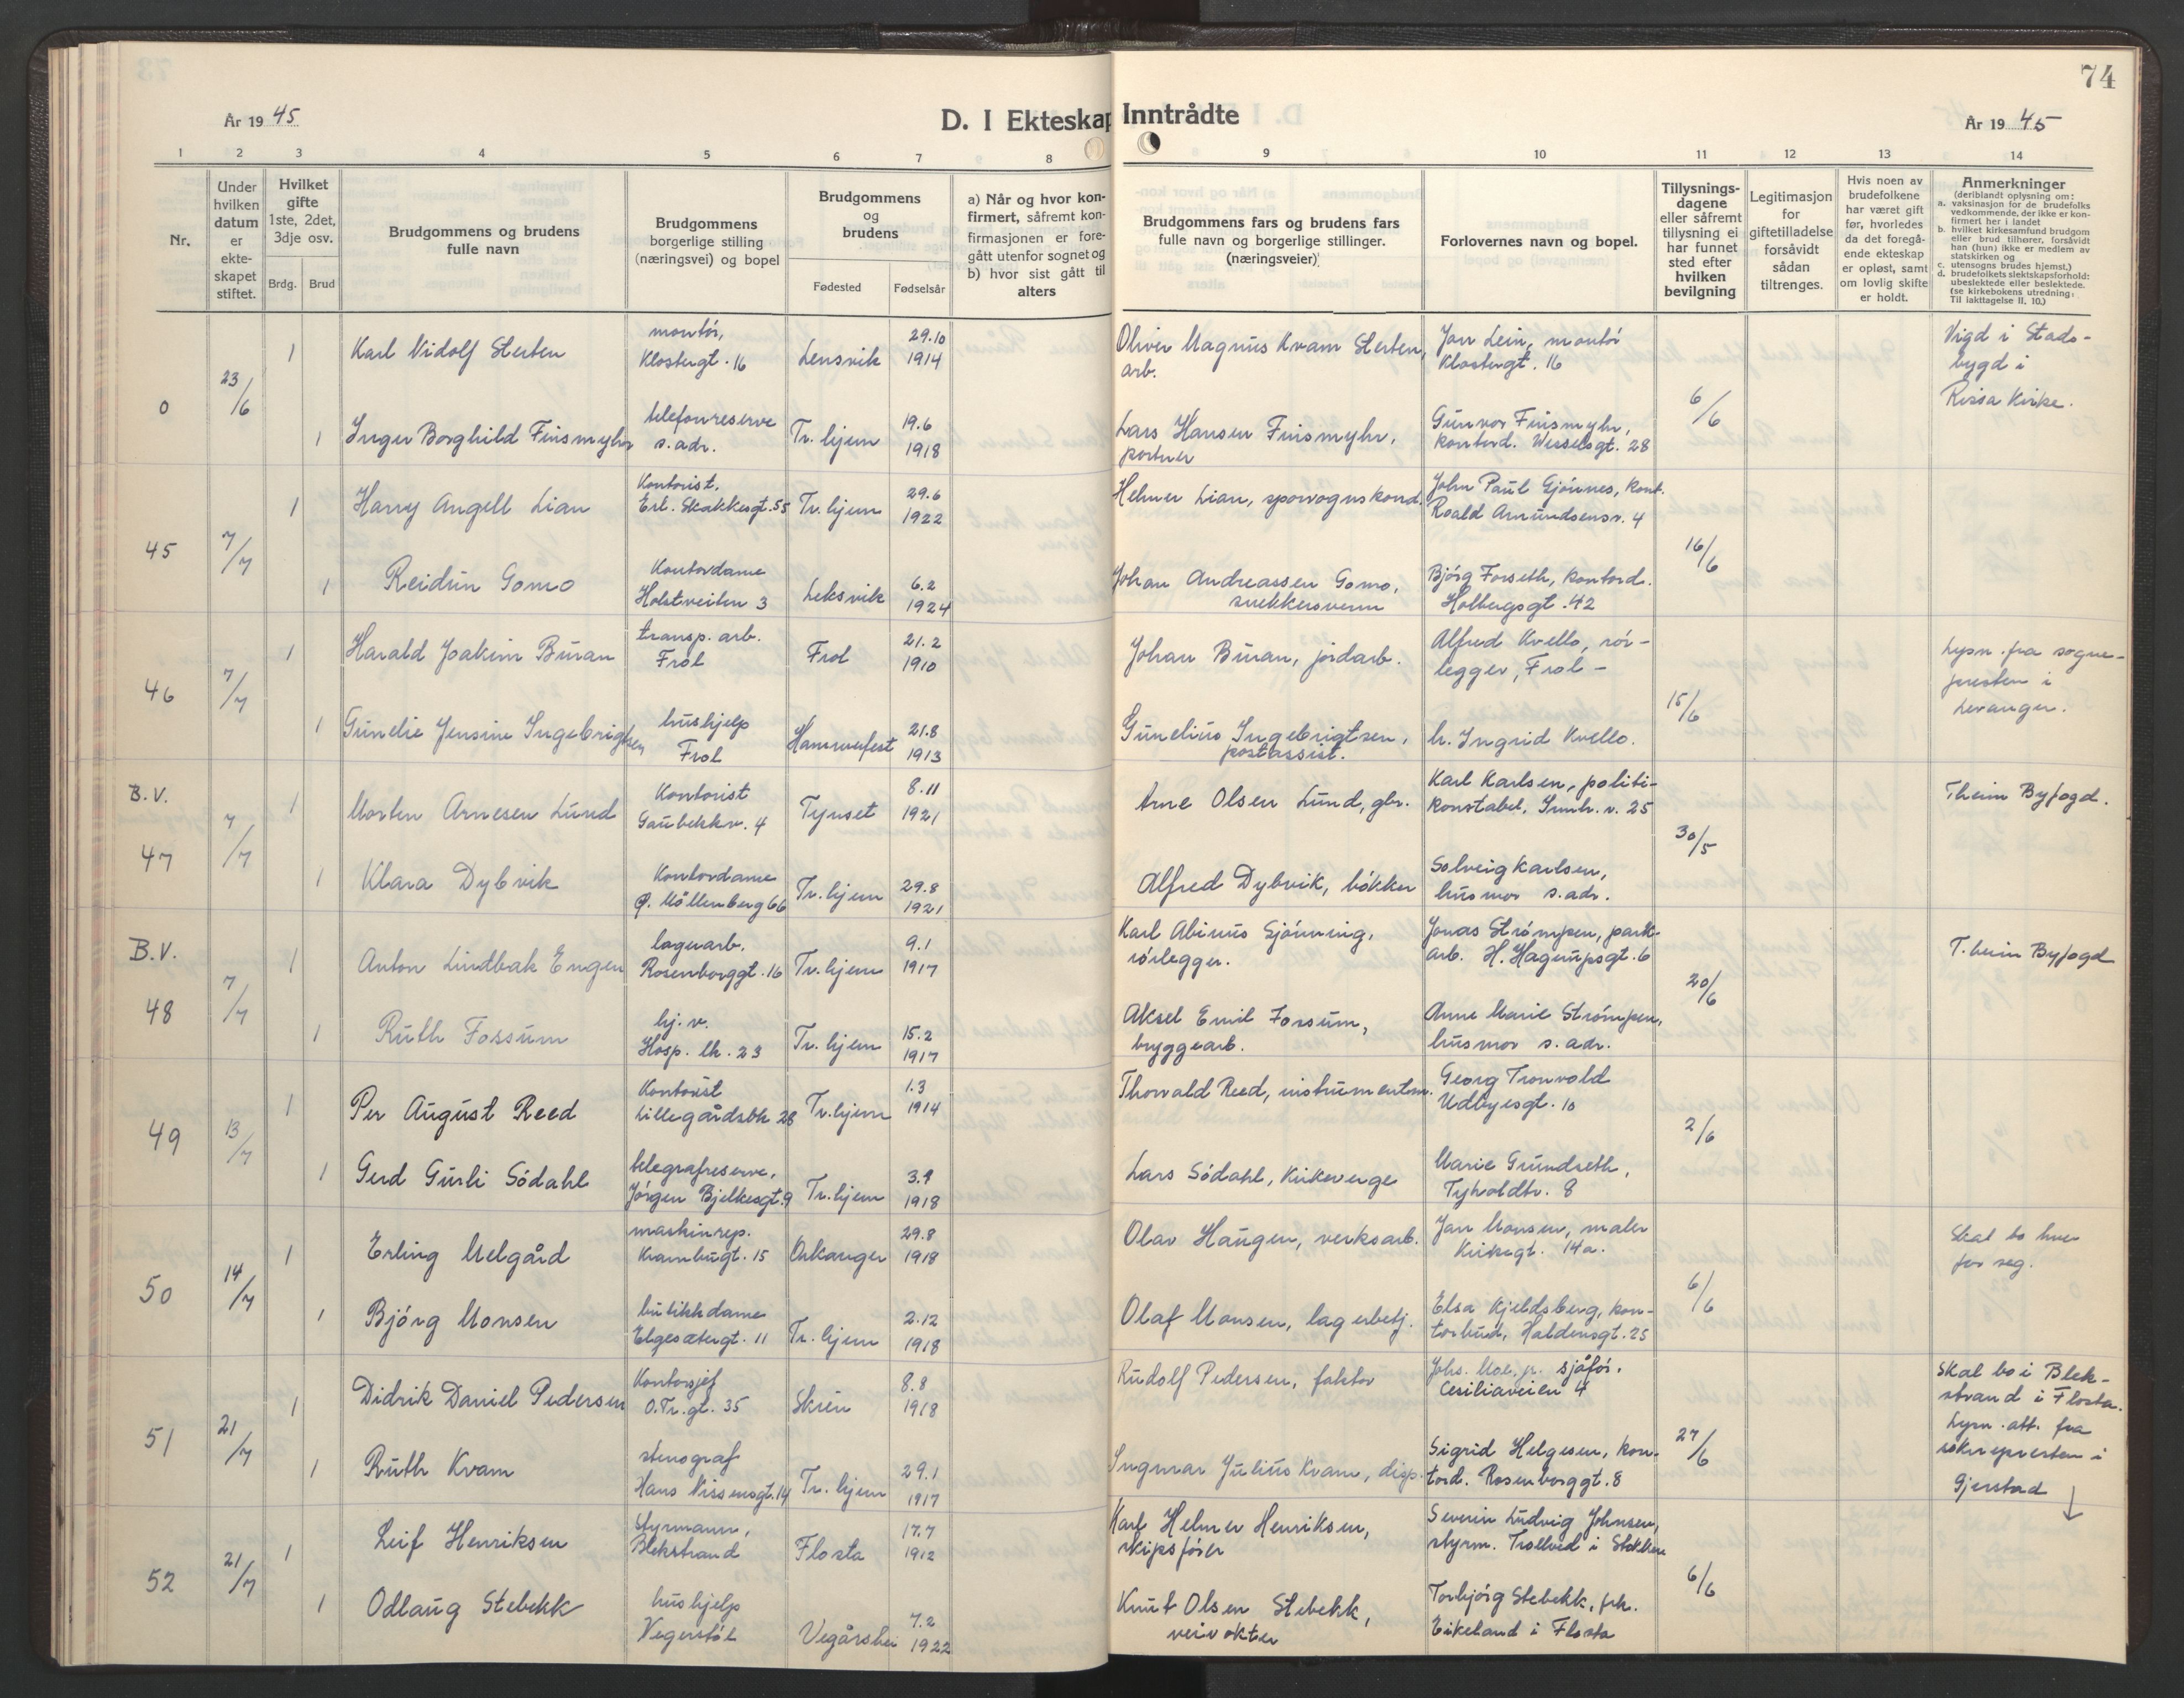 74
År 1945
D. I Ekteskap Inntrådte
År 19 45
1 2 3 4 5 6 7 8 9 10 11 12 13 14
Nr.
Under hvilken datum er ekteskapet stiftet.
Hvilket gifte 1ste, 2det, 3dje osv.
Brdg. Brud
Brudgommens og brudens fulle navn
Brudgommens borgerlige stilling (næringsvei) og bopel
Brudgommens og brudens
Fødested Fødselsår
a) Når og hvor konfirmert, såfremt konfirmasjonen er foregått utenfor sognet og b) hvor sist gått til alters
Brudgommens fars og brudens fars fulle navn og borgerlige stillinger. (næringsveier)
Forlovernes navn og bopel.
Tillysningsdagene eller såfremt tillysning ei har funnet sted efter hvilken bevilgning
Legitimasjon for giftetilladelse forsåvidt sådan tiltrenges.
Hvis noen av brudefolkene har været gift før, hvorledes da det foregående ekteskap er opløst, samt om lovlig skifte er holdt.
Anmerkninger
(deriblandt oplysning om:
a. vaksinasjon for de brudefolks vedkommende, der ikke er konfirmert her i landet
b. hvilket kirkesamfund brudgom eller brud tilhører, forsåvidt han (hun) ikke er medlem av statskirken og
c. utensogns brudes hjemst.)
d. brudefolkets slektskapsforhold: ubeslektede eller beslektede.
(se kirkebokens utredning: Til iakttagelse II, 10.)
0 23/6 1 Karl Vidolf Sterten montør, Klostergt. 16 Lensvik 29.10 1914 Oliver Magnus Kvam Sterten, arb. Jon Lein, montør Klostergt. 16 6/6 Vigd i Stadsbygd i Rissa Kirke.
1 Inger Borghild Finsmyhr telefonreserve s. adr. Tr. hjem 19.6 1918 Lars Hansen Finsmyhr, portner Gunvor Finsmyhr, kontord. Wesselsgt. 28
45 7/7 1 Harry Angell Lian Kontorist. Erl. Skakkesgt. 55 Tr. hjem 29.6 1922 Helmer Lian, sporvognskond. John Paul Gjönnes, kont. Roald Amundsensv. 4 16/6
1 Reidun Gomo Kontordame Holstveiten 3 Leksvik 6.2 1924 Johan Andreassen Gomo, snekkersvenn Bjørg Forseth, kontord. Holbergsgt. 42
46 7/7 1 Harald Joakim Buran transp. arb. Frol Frol 21.2 1910 Johan Buran, jordarb. Alfred Kvello, rørlegger, Frol - 15/6 Lysn. fra sognepresten i Levanger.
1 Gunelie Jensine Ingebrigtsen hushjelp Frol Hammerfest 21.8 1913 Gunelius Ingebrigtsen, postassist. h. Ingrid Kvello.
B.V. 47 7/7 1 Morten Arnesen Lund Kontorist Gaubekkv. 4 Tynset 8.11 1921 Arne Olsen Lund, gbr. Karl Karlsen, politikonstabel. Innh. v. 25 30/5 Theim Byfogd.
1 Klara Dybvik Kontordame Ø. Möllenberg 66 Tr. hjem 29.8 1921 Alfred Dybvik, bøkker Solveig Karlsen, husmor s. adr.
B.V. 48 7/7 1 Anton Lindbak Engen lagerarb. Rosenborggt. 16 Tr. hjem 9.1 1917 Karl Abinus Gjønning, rørlegger. Jonas Strømpen, parkarb. H. Hagerupsgt. 6 20/6 T. heim Byfogd
1 Ruth Fossum hj. v. Hosp. lk. 23 Tr. hjem 15.2 1917 Aksel Emil Fossum, bryggearb. Anne Marie Strømpen, husmor s. adr.
49 13/7 1 Per August Reed Kontorist Lillegårdsbk 28 Tr. hjem 1.3 1914 Thorvald Reed, instrumentm. Georg Tronvold Udbyesgt. 10 2/6
1 Gerd Gurli Södahl telegrafreserve, Jörgen Bjelkesgt. 9 Tr. hjem 3.9 1918 Lars Södahl, kirkeverge Marie Grundseth, Tyholdtv. 8
50 14/7 1 Erling Melgård maskinrep. Krambugt. 15 Orkanger 29.8 1918 Olav Haugen, verksarb. Jan Monsen, maler Kirkegt. 14a. 6/6 Skal bo hver for seg.
1 Bjørg Monsen butikkdame Elgesætergt. 11 Tr. hjem 2.12 1918 Olaf Monsen, lagerbetj. Elsa Kjeldsberg, kontorbud, Haldensgt. 25
51 21/7 1 Didrik Daniel Pedersen Kontorsjef O.Tr.gt. 35 Skien 8.8 1918 Rudolf Pedersen, faktor Johs. Moe, jr. sjåfør. Cesiliaveien 4 27/6 Skal bo i Blekstrand i Flosta. Lysn. att. fra sokneprersten i Gjerstad ↓
1 Ruth Kvam stenograf Hans Nissensgt. 14 Tr. hjem 29.1 1917 Ingmar Julius Kvam, disp. Sigrid Helgesen, kontord. Rosenborggt. 8
52 21/7 1 Leif Henriksen Styrmann, Blekstrand Flosta 17.7 1912 Karl Helmer Henriksen, skipsfører Severin Ludvig Johnsen, styrm. Trollved i Stokken 6/6
1 Odlaug Stebekk hushjelp Vegerstöl Vegårshei 7.2 1922 Knut Olsen Stebekk, veivokter Torbjørg Stebekk, frk. Eikeland i Flosta